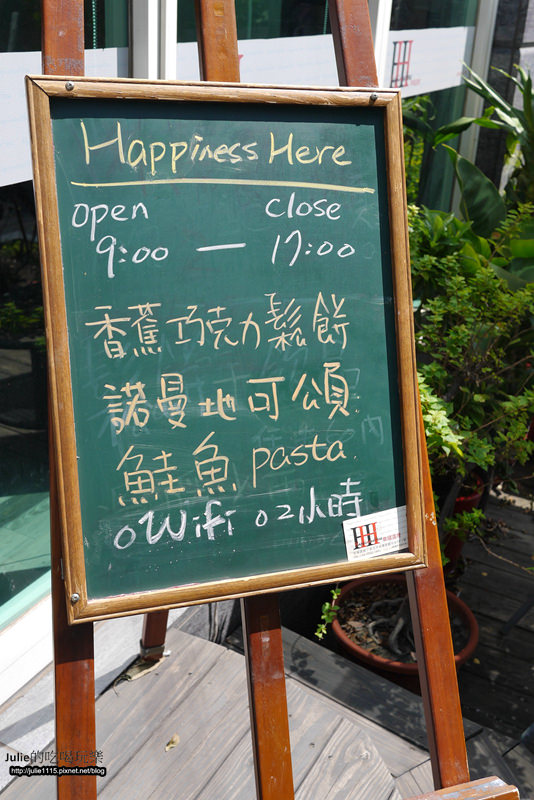 Happiness Here
open close
9:00 — 17:00
香蕉巧克力鬆餅
諾曼地可頌
鮭魚pasta.
o Wifi o 2小時
HH
Julie的吃喝玩樂
http://julie1115.pixnet.net/blog